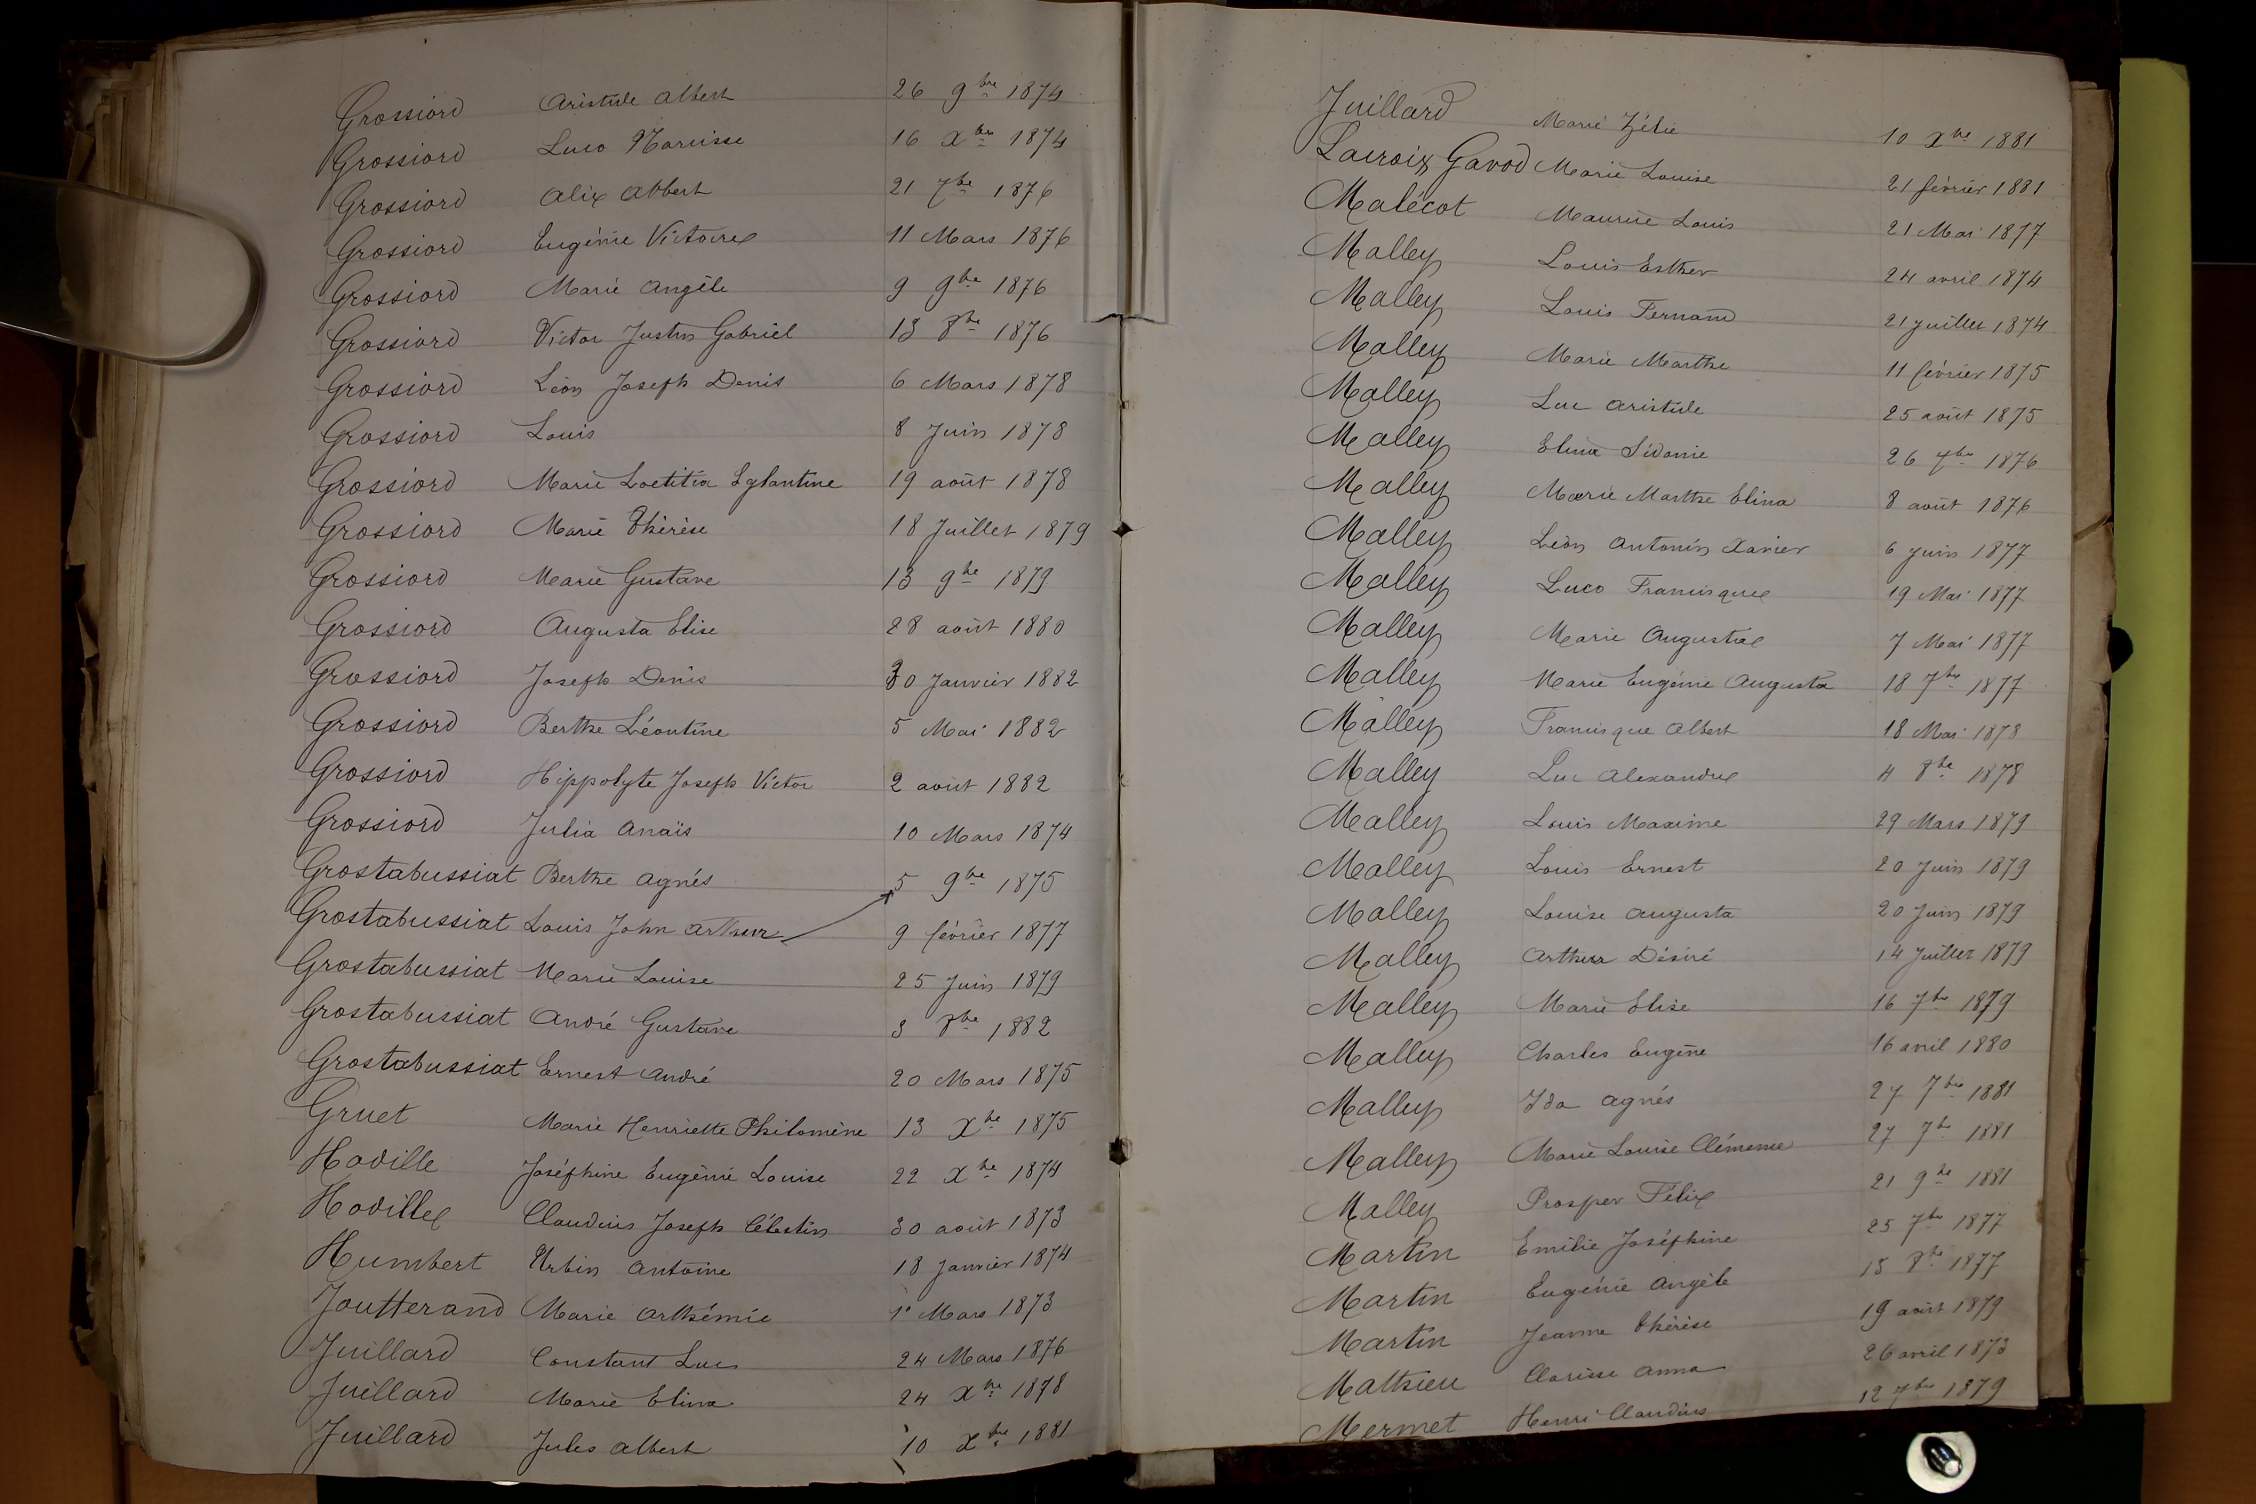 Grossiord Aristide Albert 26 9bre 1874
Grossiord Luco Narcisse 16 Xbre 1874
Grossiord Alix Albert 21 7bre 1876
Grossiord Eugénie Victoire 11 Mars 1876
Grossiord Marie Angèle 9 9bre 1876
Grossiord Victor Justin Gabriel 13 8bre 1876
Grossiord Léon Joseph Denis 6 Mars 1878
Grossiord Louis 8 Juin 1878
Grossiord Marie Laetitia Eglantine 19 août 1878
Grossiord Marie Thérèse 18 Juillet 1879
Grossiord Marie Gustave 13 9bre 1879
Grossiord Augusta Elise 28 août 1880
Grossiord Joseph Denis 30 Janvier 1882
Grossiord Berthe Léontine 5 Mai 1882
Grossiord Hippolyte Joseph Victor 2 août 1882
Grossiord Julia Anaïs 10 Mars 1874
Grostabussiat Berthe Agnés 5 9bre 1875
Grostabussiat Louis John Arthur 9 février 1877
Grostabussiat Marie Louise 25 Juin 1879
Grostabussiat André Gustave 3 8bre 1882
Grostabussiat Ernest André 20 Mars 1875
Gruet Marie Henriette Philomène 13 Xbre 1875
Hodille Joséphine Eugénie Louise 22 Xbre 1874
Hodille Claudius Joseph Célestin 30 août 1873
Humbert Urbin Antoine 18 Janvier 1874
Joutterand Marie Arthémie 1er Mars 1873
Juillard Constant Luc 24 Mars 1876
Juillard Marie Elina 24 Xbre 1878
Juillard Jules Albert 10 Xbre 1881
Juillard Marie Zélie 10 Xbre 1881
Lacroix Gavod Marie Louise 21 février 1881
Malécot Maurice Louis 21 Mai 1877
Malley Louis Esther 24 avril 1874
Malley Louis Fernand 21 Juillet 1874
Malley Marie Marthe 11 février 1875
Malley Luc Aristide 25 août 1875
Malley Elina Sidonie 26 7bre 1876
Malley Marie Marthe Elina 8 août 1876
Malley Léon Antonin Xavier 6 Juin 1877
Malley Luco Francisque 19 Mai 1877
Malley Marie Augustia 7 Mai 1877
Malley Marie Eugénie Augusta 18 7bre 1877
Malley Francisque Albert 18 Mai 1878
Malley Luc Alexandre 4 8bre 1878
Malley Louis Maxime 29 Mars 1879
Malley Louis Ernest 20 Juin 1879
Malley Louise Augusta 20 Juin 1879
Malley Arthur Désiré 14 Juillet 1879
Malley Marie Elise 16 7bre 1879
Malley Charles Eugène 16 avril 1880
Malley Ida Agnés 27 7bre 1881
Malley Marie Louise Clémence 27 7bre 1881
Malley Prosper Félix 21 9bre 1881
Martin Emilie Joséphine 25 7bre 1877
Martin Eugénie Angèle 15 8bre 1877
Martin Jeanne Thérèse 19 août 1879
Mathieu Clarisse Anna 26 avril 1873
Mermet Henri Claudius 12 7bre 1879